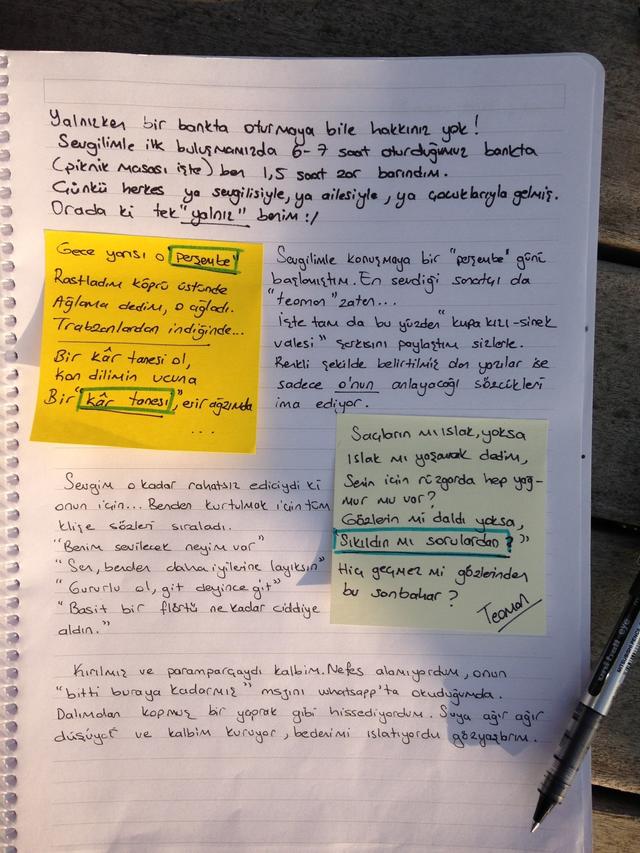 Yalnızken bir bankta oturmaya bile hakkınız yok!
Sevgilimle ilk buluşmamızda 6-7 saat oturduğumuz bankta
(piknik masası işte) ben 1,5 saat zor barındım.
Çünkü herkes ya sevgilisiyle, ya ailesiyle, ya çocuklarıyla gelmiş.
Orada ki tek "yalnız" benim :/
Gece yarısı o perşembe"
Rastladım köprü üstünde
Ağlama dedim, o ağladı.
Trabzanlardan indiğinde...
Bir kâr tanesi ol,
Kon dilimin ucuna
Bir "kâr tanesi", erir ağzımda
...
Sevgilimle konuşmaya bir "perşembe" günü
başlamıştım. En sevdiği sanatçı da
"teoman" zaten...
İşte tam da bu yüzden "kupa kızı-sinek
valesi" şarkısını paylaştım sizlerle.
Renkli şekilde belirtilmiş olan yazılar ise
sadece o'nun anlayacağı sözcükleri
ima ediyor.
Saçların mı ıslak, yoksa
ıslak mı yaşamak dedim,
Senin için rüzgarda hep yağ-
mur mu var?
Gözlerin mi daldı yoksa,
Sıkıldın mı sorulardan? "
Hiç geçmez mi gözlerinden
bu sonbahar?
Teoman
Sevgim o kadar rahatsız ediciydi ki
onun için... Benden kurtulmak için tüm
klişe sözleri sıraladı.
"Benim sevilecek neyim var"
"Sen, benden daha iyilerine layıksın"
"Gururlu ol, git deyince git"
"Basit bir flörtü ne kadar ciddiye
aldın."
Kırılmış ve paramparçaydı kalbim. Nefes alamıyordum, onun
"bitti buraya kadarmış" msjını whatsapp'ta okuduğumda.
Dalımdan kopmuş bir yaprak gibi hissediyordum. Suya ağır ağır
ve kalbim kuruyor, bedenimi ıslatıyordu gözyaşlarım.
uni-ball eye